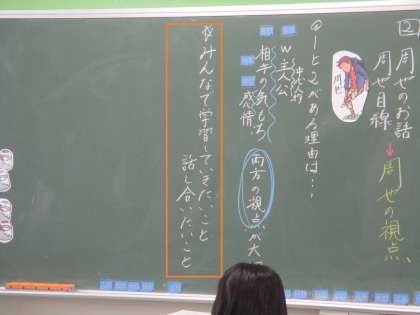 2 周也のお話
周也目線→周也の視点
周也
1と2がある理由は・・・
W主人公
相手の気もち
感情
両方の視点が大
☆みんなで学習していきたいこと
話し合いたいこと